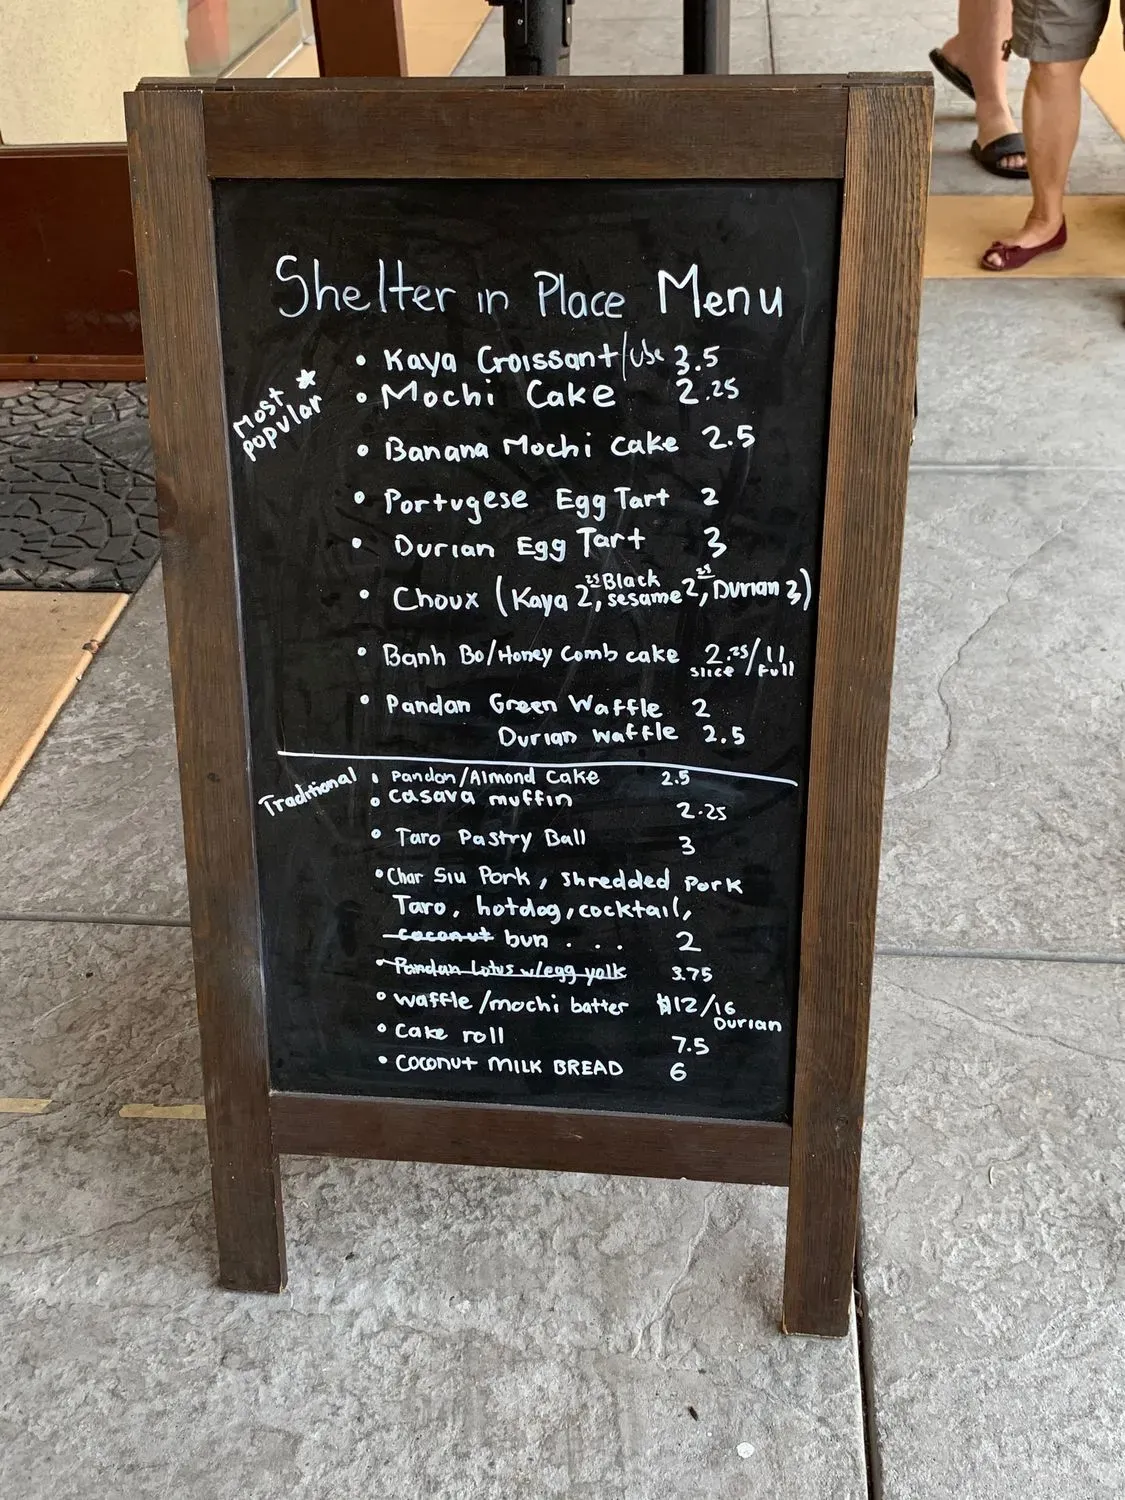 Shelter in Place Menu
Most ★ popular
• Kaya Croissant/Ube 3.5
• Mochi Cake 2.25
• Banana Mochi Cake 2.5
• Portugese Egg Tart 2
• Durian Egg Tart 3
• Choux (Kaya 2.25, Black sesame 2.25, Durian 3)
• Banh Bo/Honey Comb cake 2.25/11
slice full
• Pandan Green Waffle 2
Durian waffle 2.5
Traditional
• Pandan/Almond Cake 2.5
• Casava muffin 2.25
• Taro Pastry Ball 3
• Char Siu Pork, shredded Pork
Taro, hotdog, cocktail,
coconut bun . . . 2
• Pandan Lotus w/egg yolk 3.75
• waffle/mochi batter $12/16
Durian
• Cake roll 7.5
• Coconut MILK BREAD 6